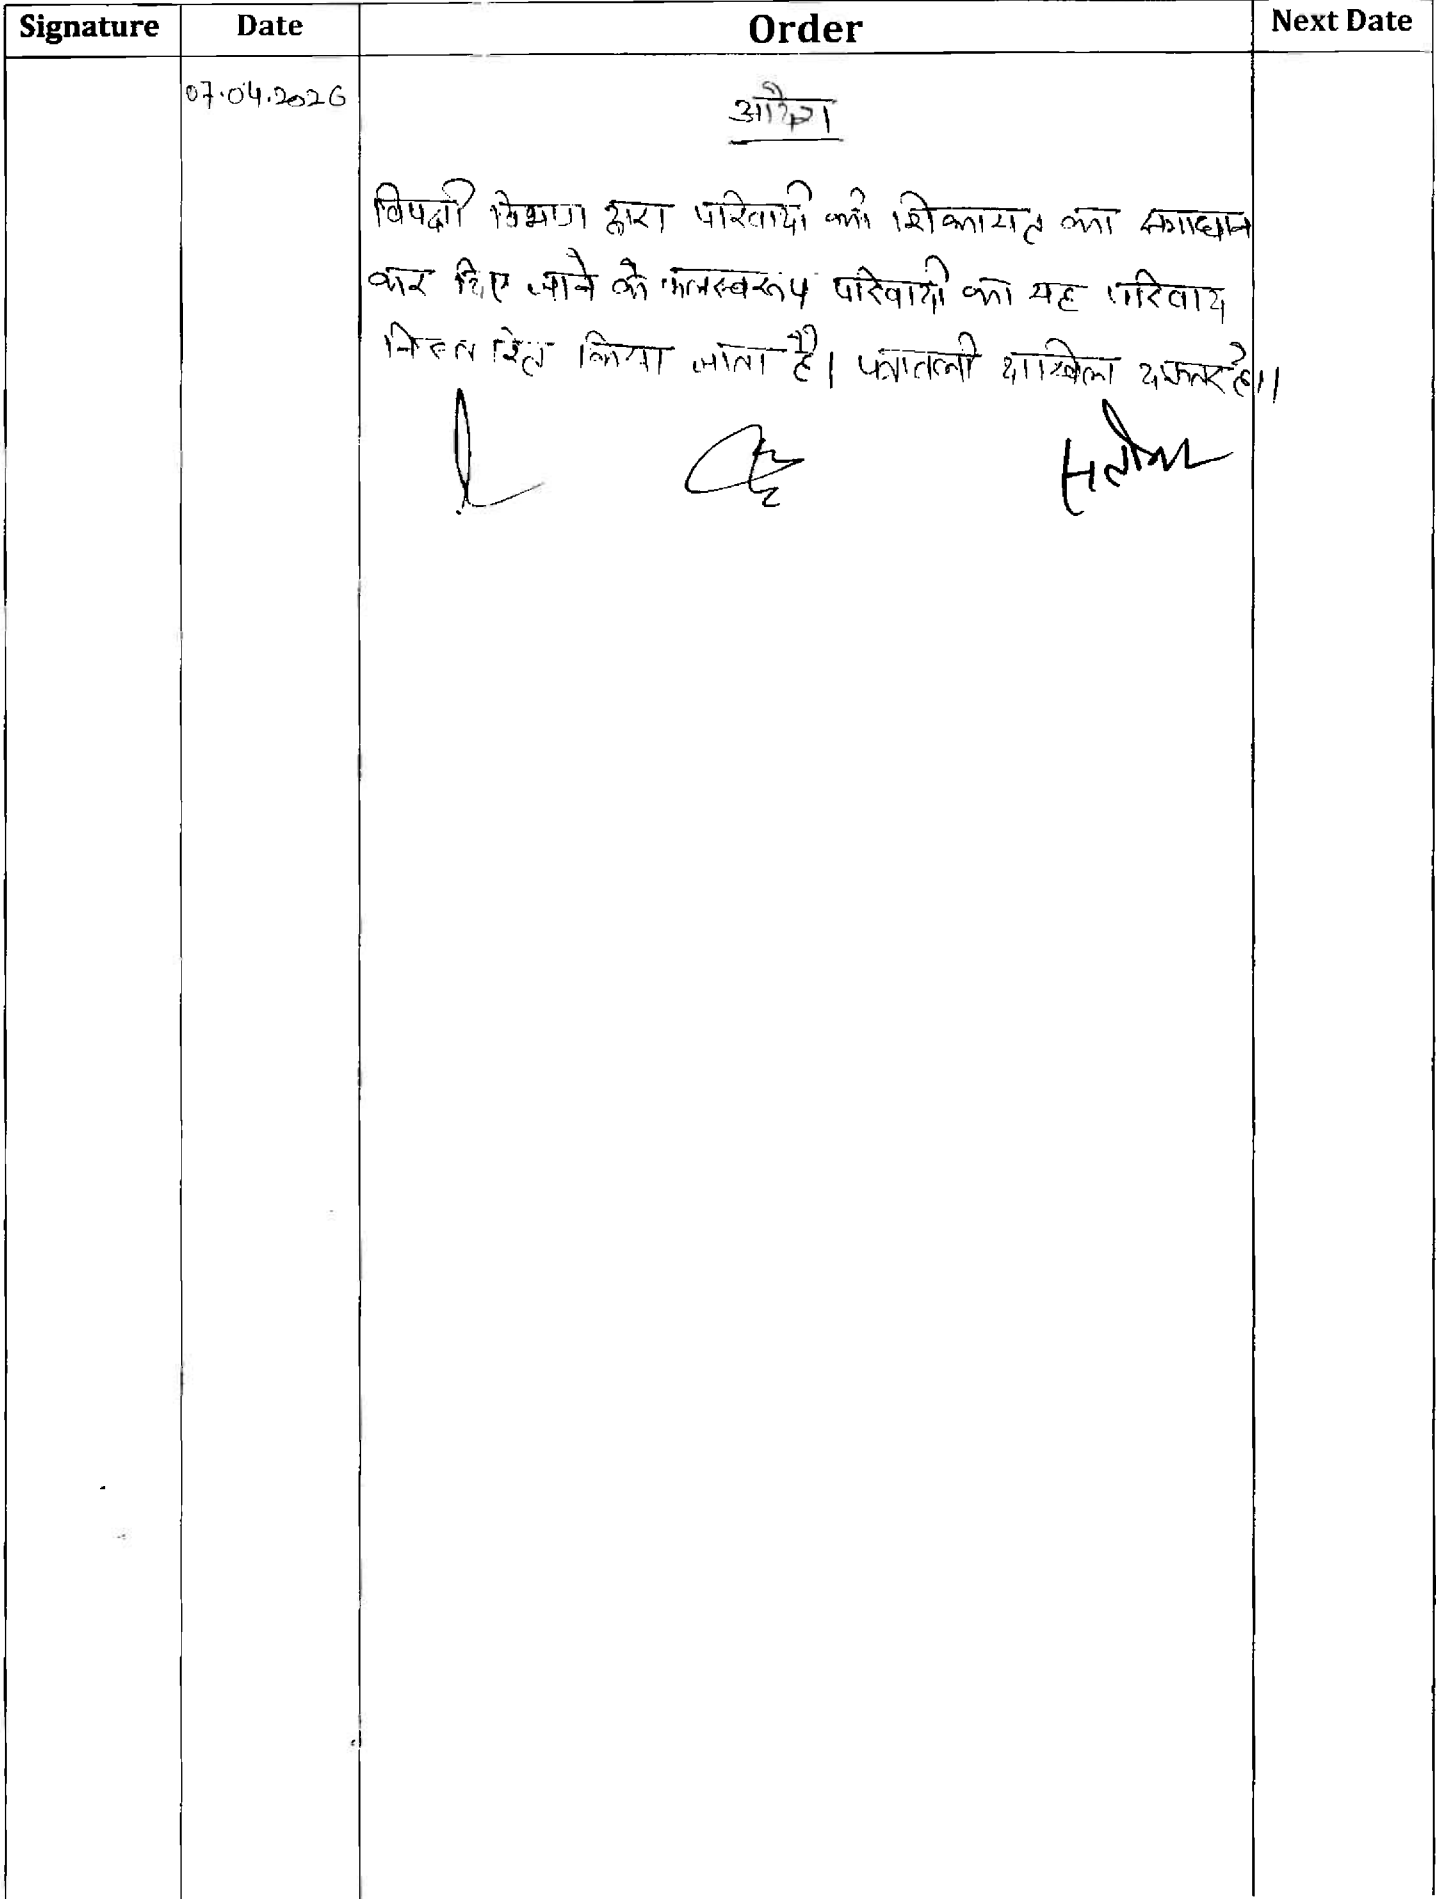 Signature Date Order Next Date
07.04.2026
आदेश
विपक्षी विभाग द्वारा परिवादी की शिकायत का समाधान
कर दिए जाने के फलस्वरूप परिवादी का यह परिवाद
निस्तारित किया जाता है। पत्रावली दाखिल दफ्तर हो।